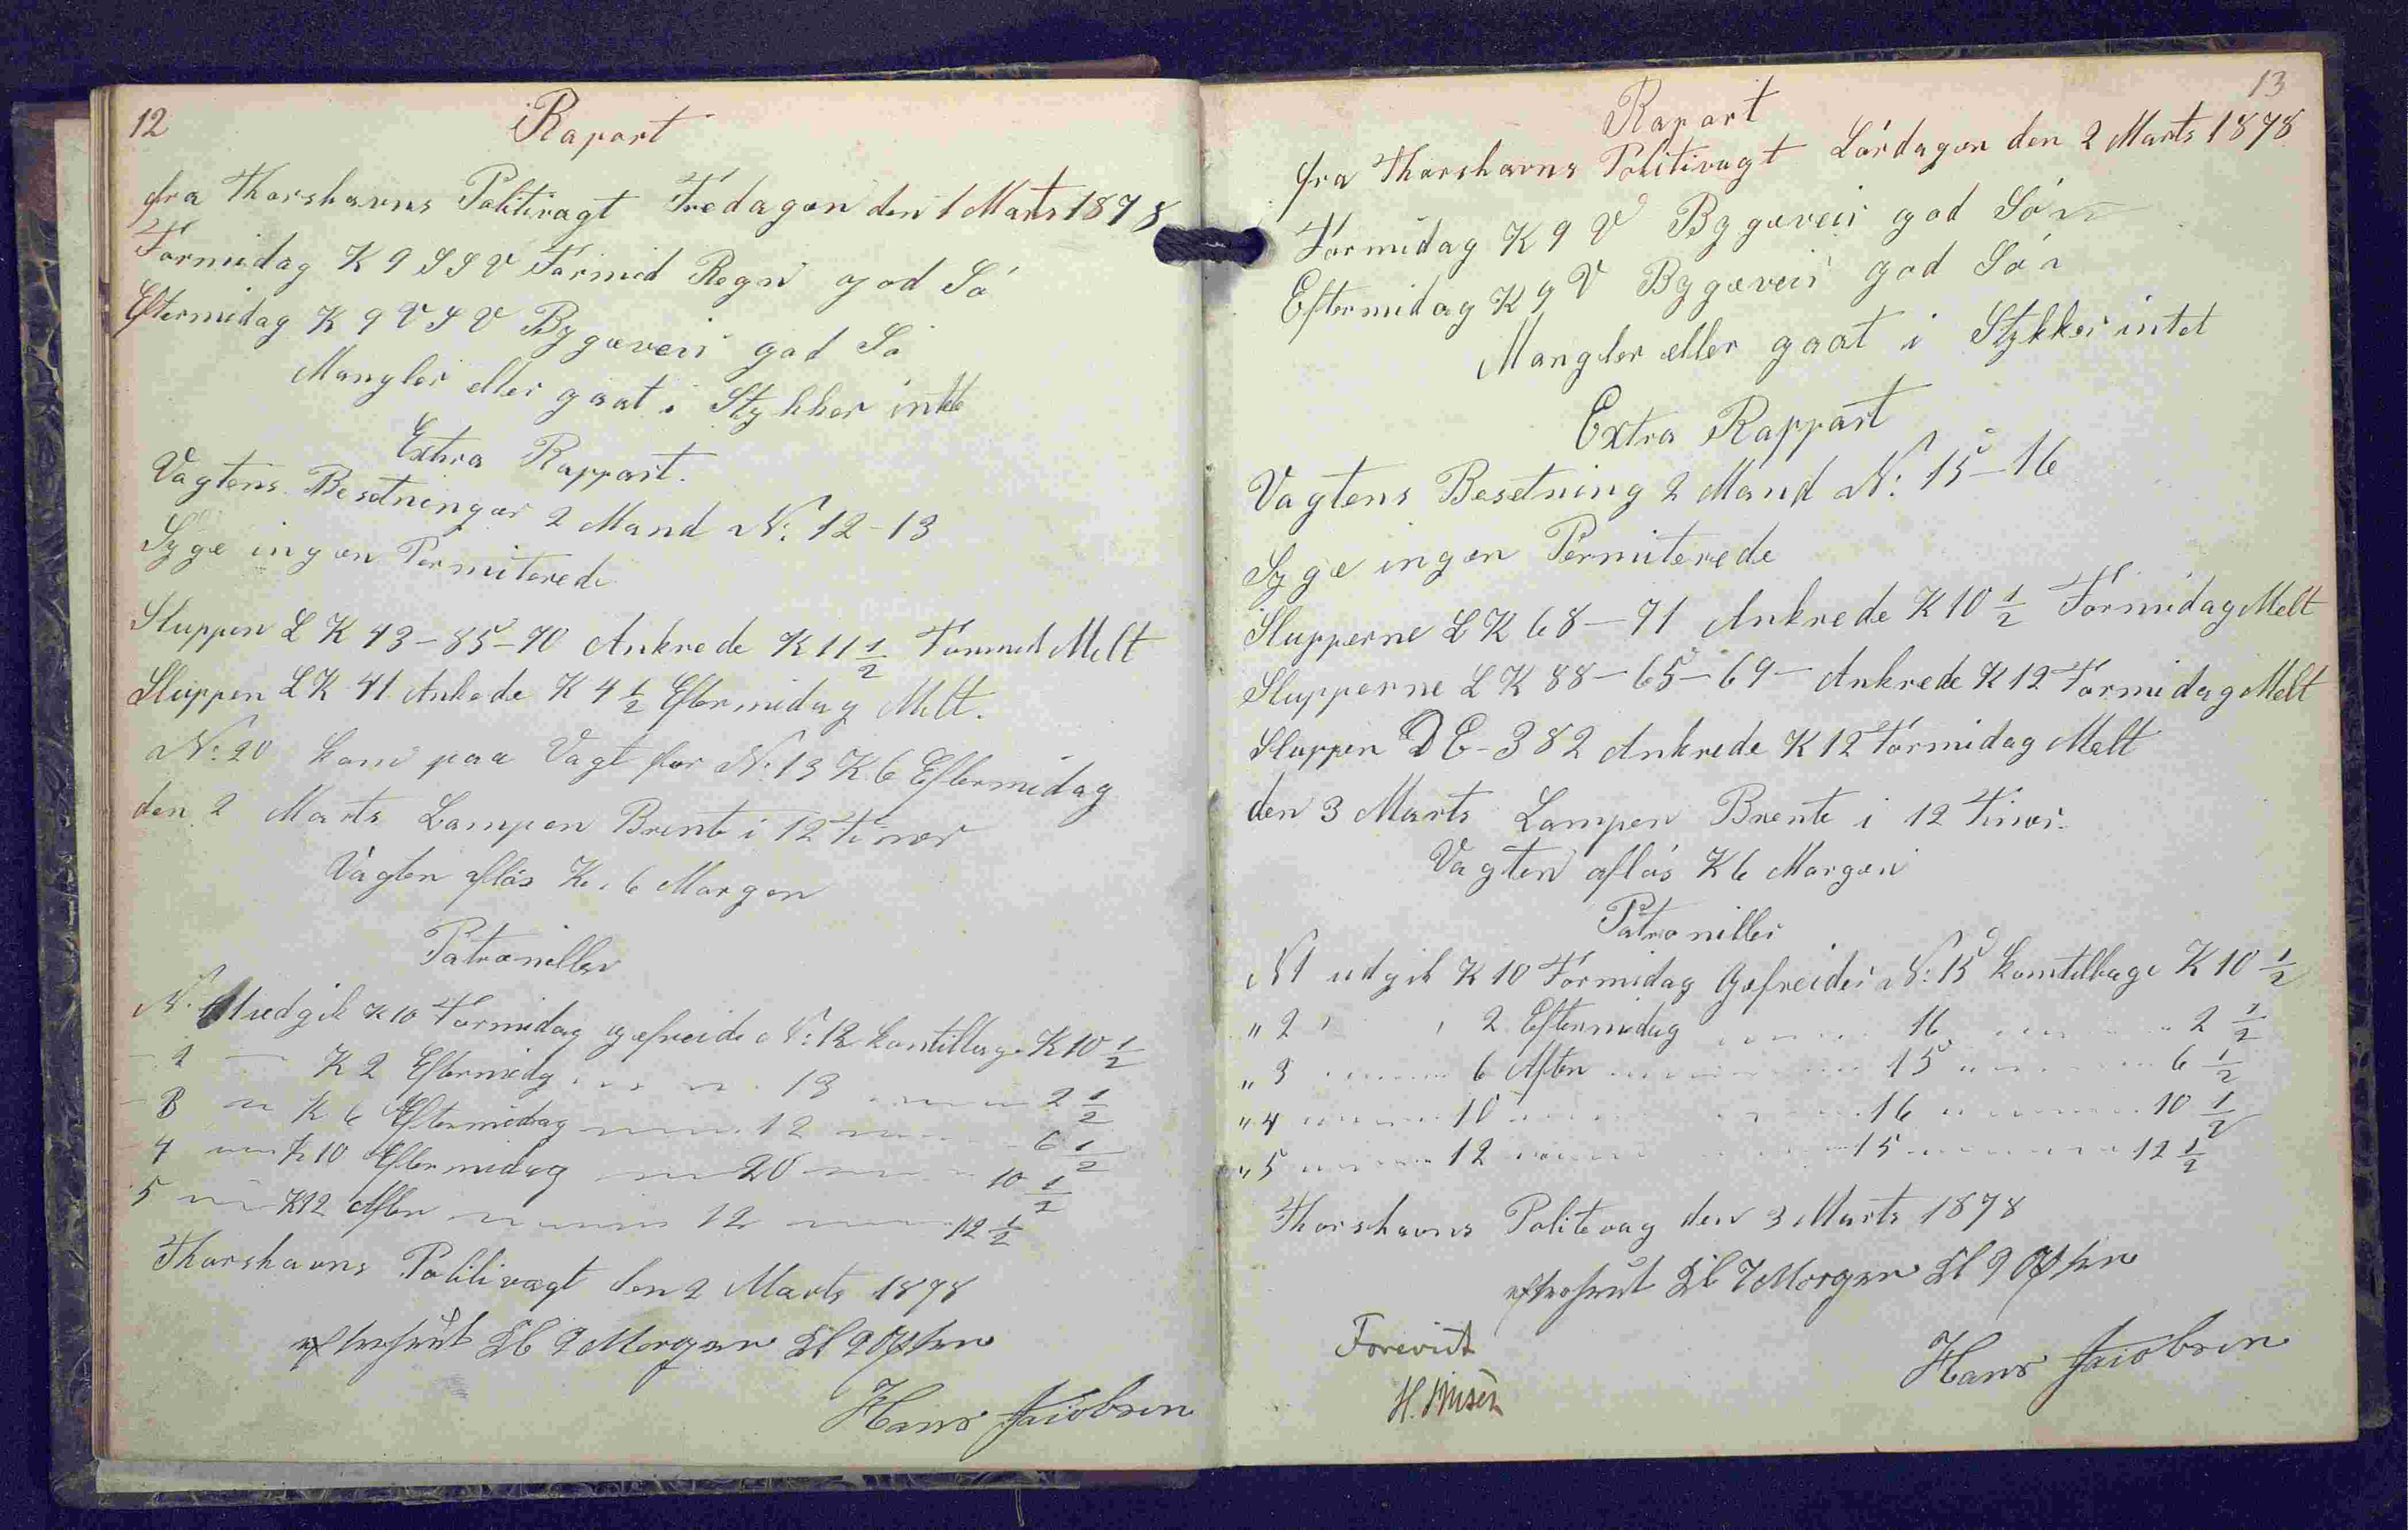 12
Raport
fra Thorshavns Politivagt Fredagen den 1 Marts 1878
Formidag K 9 SSV Formid Regn god Sö
Eftermidag K 9 VSV Bygeveir god Sö
Mangler eller gaat i Stykker intet
Extra Rapport.
Vagtens Besetninger 2 Mand N: 12-13
Syge ingen Permiterede
Sluppen L K 43-85-70 Ankrede K 11 1/2 Formid Melt
Sluppen LK 41 Ankede K 4 1/2 Eftermidag Melt.
N: 20 kom paa Vagt for N: 13 K 6 Eftermidag
den 2 Marts Lampen Brente i 12 Timer
Vagten aflös K. 6 Morgen
Patroniller
N. 1 udgik K 10 Formidag gefreide N: 12 komtilbage K 10 1/2
2 K 2 Eftermidg 13 2 1/2
3 K 6 Eftermidag 12 6 1/2
4 K 10 Eftermidag 20 10 1/2
5 K 12 Aften 12 12 1/2
Thorshavns Politivagt den 2 Marts 1878
Morgen Aften
Hans Jacobsen
13
Raport
fra Thorshavns Politivagt Lördagen den 2 Marts 1878
Formidag K 9 V Bygeveir god Sö
Eftermidag K 9 V Bygeveir god Sö
Mangler eller gaat i Stykker intet
Extra Rappart
Vagtens Besetning 2 Mand N: 15-16
Syge ingen Permiterede
Slupperne L K 68-71 Ankrede K 10 1/2 Formidag Melt
Slupperne L K 88-65-69- Ankrede K 12 Formidag Melt
Sluppen D E-382 Ankrede K 12 Formidag Melt
den 3 Marts Lampen Brente i 12 Timer.
Vagten aflös K 6 Morgen
Patroniller
N 1 udgik K 10 Formidag Gefreider N: 15 komtilbage K 10 1/2
" 2 2 Eftermidag 16 2 1/2
" 3 6 Aften 15 6 1/2
" 4 10 16 10 1/2
" 5 12 15 12 1/2
Thorshavns Politevag den 3 Marts 1878
Kl 7 Morgen Kl 9 Aften
Forevist
Hans Jacobsen